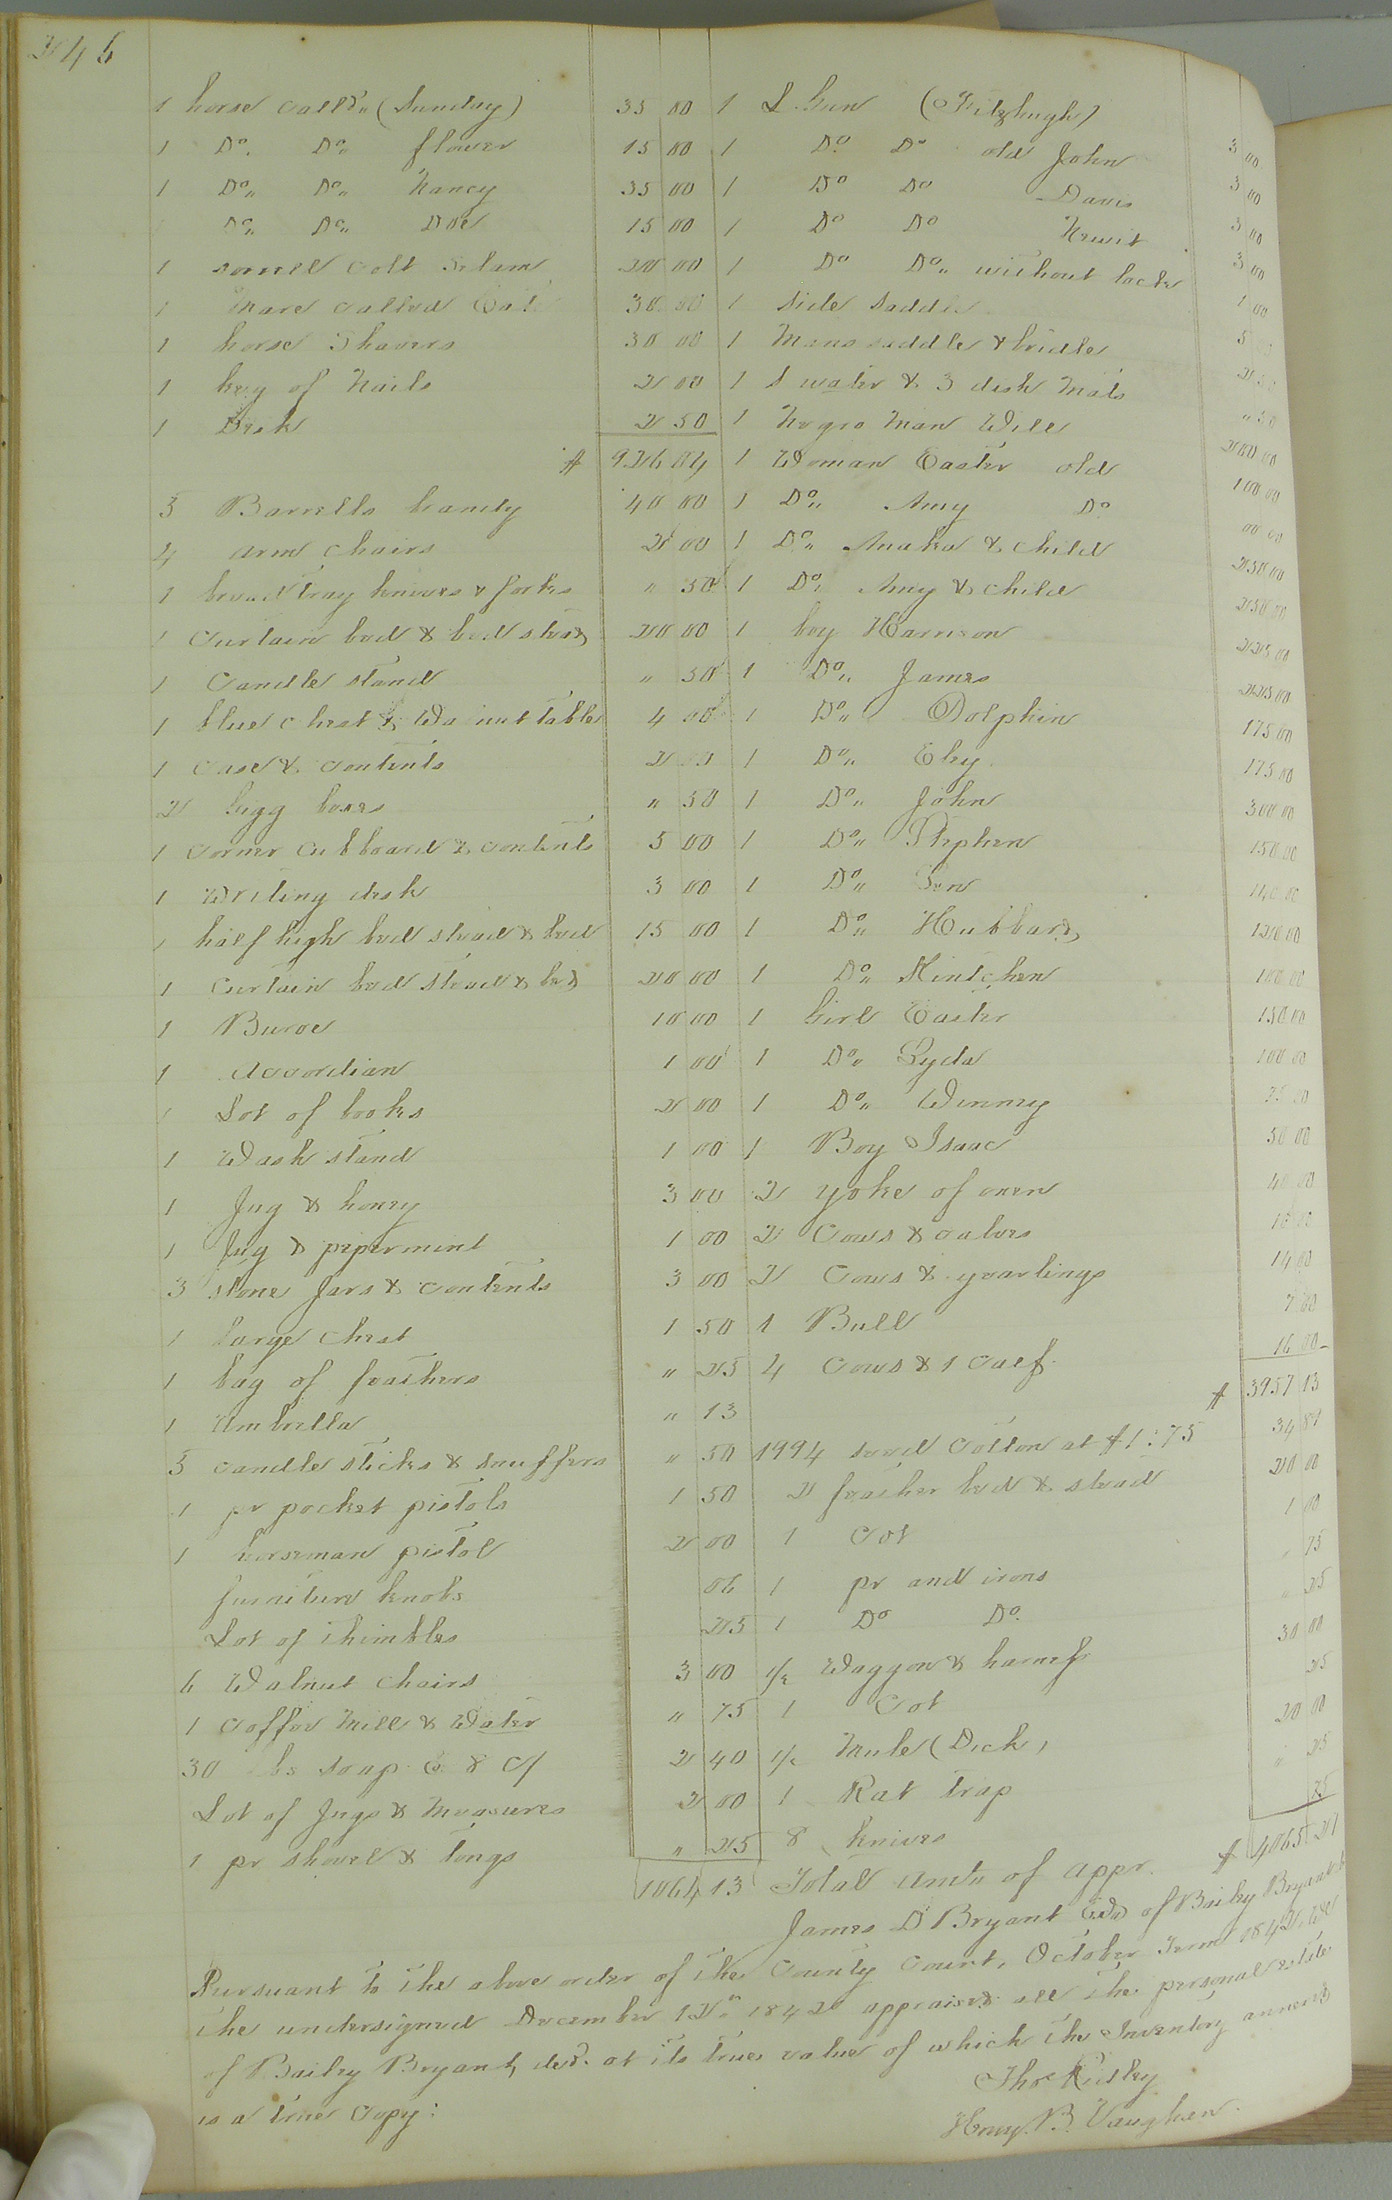 246
1 horse calld (Sunday) 35 00
1 Do. Do. flower 15 00
1 Do. Do. Nancy 35 00
Do. Do. Doe 15 00
1 sorrell colt 20 00
1 Mare called 30 00
1 horse Shavers 30 00
1 keg of Nails 2 00
1 Desk 2 50
$ 926 04
5 Barrells Brandy 40 00
4 arm chairs 2 00
1 bread tray knives & forks " 50
1 Curtain bed & bed stead 20 00
1 Candle stand " 50
1 blue chest & Walnut table 4 00
1 case & contents 2 00
2 Gugg boxes " 50
1 corner cubboard & contents 5 00
1 Writing desk 3 00
1 half high bed stead & bed 15 00
1 Curtain bed stead & bed 20 00
1 Buroe 10 00
1 accordian 1 00
1 Lot of books 2 00
1 Wash stand 1 00
1 Jug & honey 3 00
1 Jug & pepermint 1 00
3 stone Jars & contents 3 00
1 large chest 1 50
1 bag of feathers " 25
1 Umbrella " 13
5 candle sticks & snuffers " 50
1 pr pocket pistols 1 50
1 horseman pistol 2 00
furniture knobs 06
Lot of thimbles 25
6 Walnut chairs 3 00
1 Coffee Mill & Water " 75
30 lbs soap @ 8 c/ 2 40
Lot of Jugs & Measures 2 00
1 pr shovel & tongs " 25
1064 13
1 S. Gun (Fitzhugh) 3 00
1 Do Do old John 3 00
1 Do Do Davis 3 00
1 Do Do 3 00
1 Do Do. without lock 1 00
1 side saddle 5
1 Mans saddle & bridle
1 S water & 3 dish Mats " 50
1 Negro Man Will 200 00
1 Woman Easter old 100 00
1 Do. Amy Do 00 00
1 Do. Anaka & child 250 00
1 Do. Amy & child 250 00
1 boy Harrison 225 00
1 Do. James 225 00
1 Do. Dolphin 175 00
1 Do. Eley 175 00
1 Do. John 300 00
1 Do. Stephen 150 00
1 Do. 140 00
1 Do. Hubbard 120 00
1 Do. Kintchen 100 00
1 Girl Easter 150 00
1 Do. Lyda 100 00
1 Do. Winney 75 00
1 Boy Isaac 50 00
2 yoke of oxen 40 00
2 Cows & calves
2 Cows & yearlings 14 00
1 Bull 7 00
4 Cows & 1 Calf 16 00
$ 3957 13
1994 seed Cotton at $1:75 34 89
2 feather bed & stead 20 00
1 Cot 1 00
1 pr and irons " 75
1 Do Do. " 25
1/2 Waggon & harness 30 00
1 Cot 25
1/2 Mule (Dick) 20 00
1 Rat trap " 25
8 knives 75
Total amt. of appr. $ 4065 27
James D Bryant Exr of Bailey Bryant
Pursuant to the above order of the County Court, October Term 1842 We
the undersigned December 12th 1842 appraised all the personal estate
of Bailey Bryant, decd. at its true value of which the Inventory annexed
is a true Copy:
Thos Pursley
Henry. B. Vaughan.